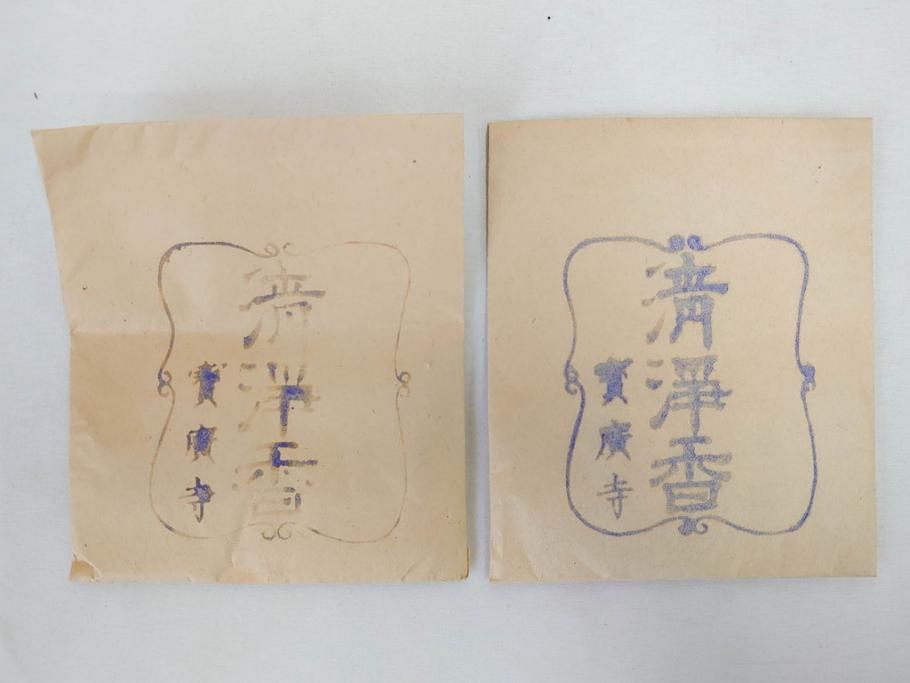 清淨香
寶廣寺
清淨香
寶廣寺